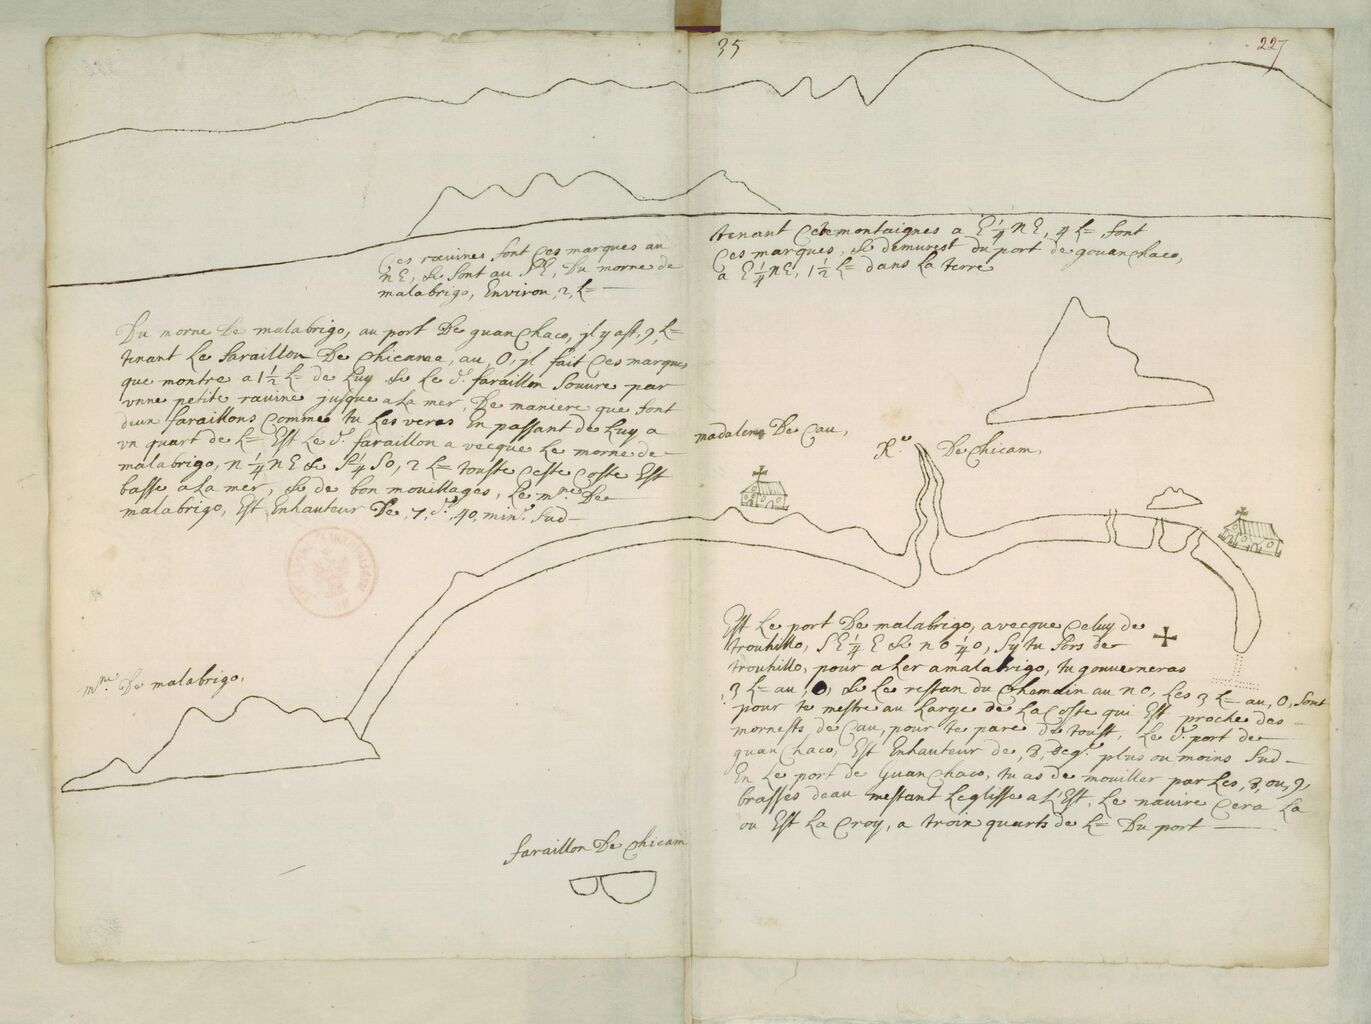 35
227
Ces ravines, font Ces marques au
NE, & sont au SE, Du morne de
malabrigo, Environ, 2, L=
tenant Ces montaignes a E 1/4 NE, 4 L= font
Ces marques, & demurest du port de gouanChaco,
a E 1/4 NE, 1 1/2 L= dans La terre
Du morne De malabrigo, au port De guanChaco, jl y ast, 9, L=
tenant Le faraillon De Chicama, au, O, jl fait Ces marques
que montre a 1 1/2 L= de Luy & Le d.t faraillon Souure par
vnne petite ravine jusque a La mer, De maniere que font
deux faraillons Comme tu Les veras En passant de Luy a
vn quart de L= Est Le d.t faraillon avecque Le morne de
malabrigo, N 1/4 NE & S 1/4 SO, 2 L= toutte Ceste Coste Est
basse a La mer, & de bon mouillages, Le m.ne De
malabrigo, Est Enhauteur De, 7, d.s 40, min.s Sud
madalena De Cau,
R.o De Chicam
m.ne De malabrigo,
Est Le port De malabrigo, avecque Celuy de
trouhillo, SE 1/4 E & NO 1/4 O, Sy tu Sors de
trouhillo, pour aLer a malabrigo, tu gouverneras
3 L= au, O, & Le restan du Chemain au NO, Les 3 L= au, O, Sont
pour te mestre au Large de La Coste qui Est proche des
mornests de Cau, pour te pare de toust, Le d.t port de
guanChaco, Est Enhauteur de, 8, deg.s plus ou moins Sud
En Le port de GuanChaco, tu as de mouiller par Les, 8, ou, 9
brasses deau mestant Leglisse a L'Est, Le navire Cera La
ou Est La Croy, a troin quarts de L= Du port
faraillon De Chicam